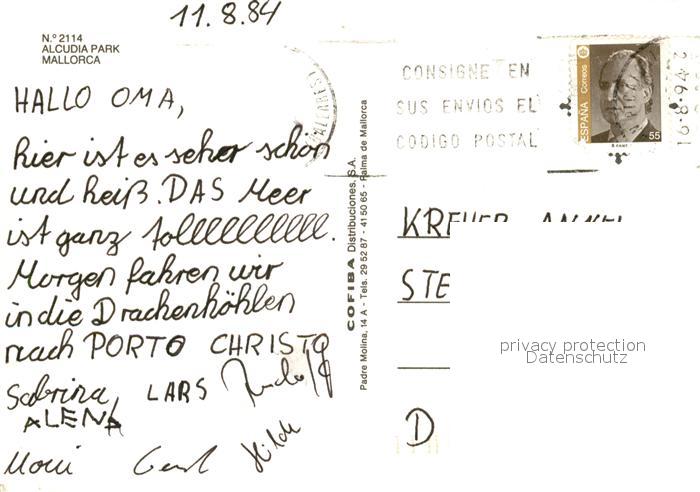 11.8.84
N.º 2114
ALCUDIA PARK
MALLORCA
HALLO OMA,
hier ist es seher schön
und heiß. DAS Meer
ist ganz tolllllllllll.
Morgen fahren wir
in die Drachenhöhlen
nach PORTO CHRISTO
Sabrina, LARS
ALENA
COFIBA Distribuciones, S.A.
Padre Molina, 14 A - Tels. 29 52 87 - 41 50 65 - Palma de Mallorca
CONSIGNE EN
SUS ENVIOS EL
CODIGO POSTAL
ESPAÑA Correos
55
STE
D
privacy protection
Datenschutz